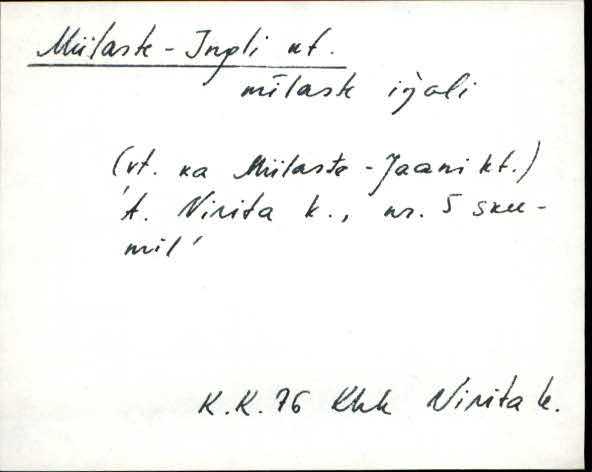 Miilaste-Ingli kt.
mīlaste iŋ̀li
(vt. ka Miilaste-Jaani kt.)
't. Ninita k., nr. 5 skee-
mil'
K.K. 76 Khk Ninita k.